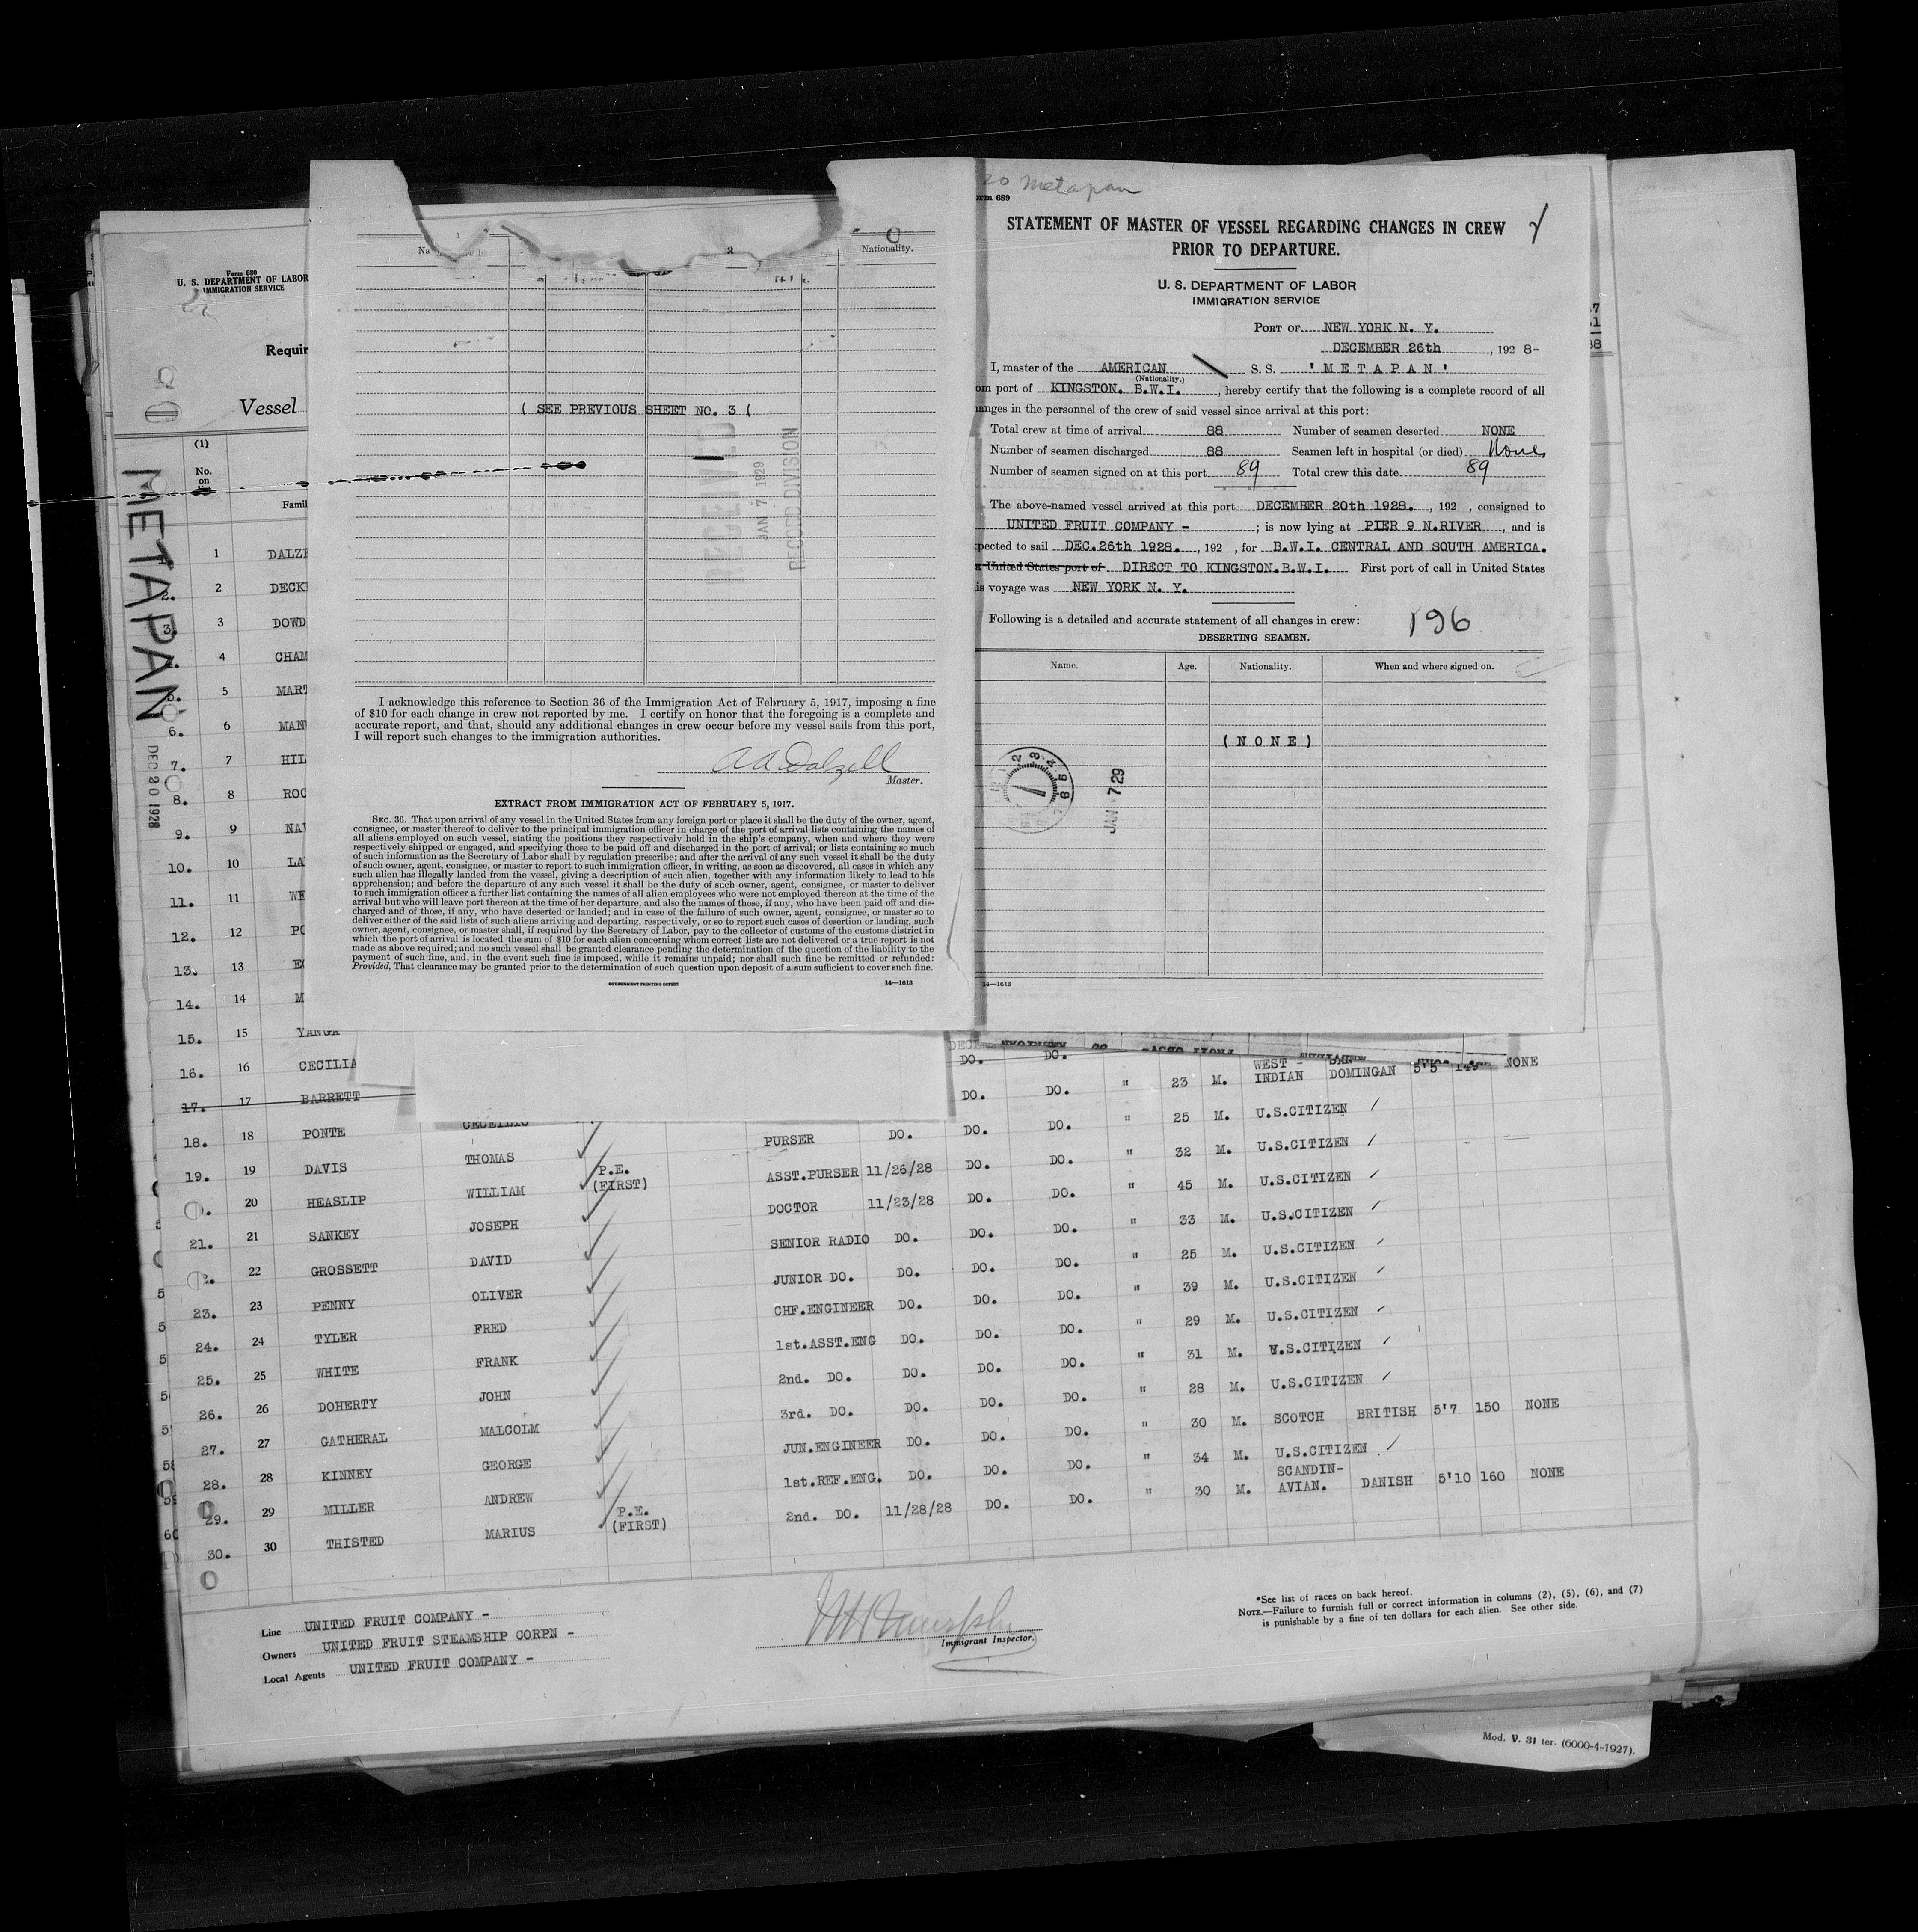 Form 680
U. S. DEPARTMENT OF LABOR
IMMIGRATION SERVICE
Requir
Vessel
(1)
No.
on
Famil
METAPAN
DEC 20 1928
1 DALZE
2 DECK
3 DOWD
4 CHAM
5 MART
6. 6 MAN
7. 7 HIL
8. 8 ROC
9. 9 NA
10. 10 LA
11. 11 WE
12. 12 PO
13. 13
14. 14 M
15. 15 YANGA
16. 16 CECILIA
17. 17 BARRETT
18. 18 PONTE
19. 19 DAVIS
20 HEASLIP
21. 21 SANKEY
22 GROSSETT
23. 23 PENNY
24. 24 TYLER
25. 25 WHITE
26. 26 DOHERTY
27. 27 GATHERAL
28. 28 KINNEY
29. 29 MILLER
30. 30 THISTED
CECELIO
THOMAS
WILLIAM
JOSEPH
DAVID
OLIVER
FRED
FRANK
JOHN
MALCOLM
GEORGE
ANDREW
MARIUS
P.E.
(FIRST)
P.E.
(FIRST)
DO. DO.
WEST - SAN
INDIAN DOMINGAN 5'5 NONE
DO. DO. " 23 M.
PURSER DO. DO. DO. " 25 M. U.S.CITIZEN
ASST.PURSER 11/26/28 DO. DO. " 32 M. U.S.CITIZEN
DOCTOR 11/23/28 DO. DO. " 45 M. U.S.CITIZEN
SENIOR RADIO DO. DO. DO. " 33 M. U.S.CITIZEN
JUNIOR DO. DO. DO. DO. " 25 M. U.S.CITIZEN
CHF.ENGINEER DO. DO. DO. " 39 M. U.S.CITIZEN
1st.ASST.ENG DO. DO. DO. " 29 M. U.S.CITIZEN
2nd. DO. DO. DO. DO. " 31 M. U.S.CITIZEN
3rd. DO. DO. DO. DO. " 28 M. U.S.CITIZEN
JUN.ENGINEER DO. DO. DO. " 30 M. SCOTCH BRITISH 5'7 150 NONE
1st.REF.ENG. DO. DO. DO. " 34 M. U.S.CITIZEN
2nd. DO. 11/28/28 DO. DO. " 30 M. SCANDIN-
AVIAN. DANISH 5'10 160 NONE
Line UNITED FRUIT COMPANY -
Owners UNITED FRUIT STEAMSHIP CORPN -
Local Agents UNITED FRUIT COMPANY -
Immigrant Inspector.
*See list of races on back hereof.
NOTE.—Failure to furnish full or correct information in columns (2), (5), (6), and (7)
is punishable by a fine of ten dollars for each alien. See other side.
Mod. V. 31 ter. (6000-4-1927).
3
Nationality.
( SEE PREVIOUS SHEET NO. 3 (
RECEIVED
JAN 7 1929
RECORD DIVISION
I acknowledge this reference to Section 36 of the Immigration Act of February 5, 1917, imposing a fine
of $10 for each change in crew not reported by me. I certify on honor that the foregoing is a complete and
accurate report, and that, should any additional changes in crew occur before my vessel sails from this port,
I will report such changes to the immigration authorities.
A A Dalzell
Master.
EXTRACT FROM IMMIGRATION ACT OF FEBRUARY 5, 1917.
SEC. 36. That upon arrival of any vessel in the United States from any foreign port or place it shall be the duty of the owner, agent,
consignee, or master thereof to deliver to the principal immigration officer in charge of the port of arrival lists containing the names of
all aliens employed on such vessel, stating the positions they respectively hold in the ship's company, when and where they were
respectively shipped or engaged, and specifying those to be paid off and discharged in the port of arrival; or lists containing so much
of such information as the Secretary of Labor shall by regulation prescribe; and after the arrival of any such vessel it shall be the duty
of such owner, agent, consignee, or master to report to such immigration officer, in writing, as soon as discovered, all cases in which any
such alien has illegally landed from the vessel, giving a description of such alien, together with any information likely to lead to his
apprehension; and before the departure of any such vessel it shall be the duty of such owner, agent, consignee, or master to deliver
to such immigration officer a further list containing the names of all alien employees who were not employed thereon at the time of the
arrival but who will leave port thereon at the time of her departure, and also the names of those, if any, who have been paid off and dis-
charged and of those, if any, who have deserted or landed; and in case of the failure of such owner, agent, consignee, or master so to
deliver either of the said lists of such aliens arriving and departing, respectively, or so to report such cases of desertion or landing, such
owner, agent, consignee, or master shall, if required by the Secretary of Labor, pay to the collector of customs of the customs district in
which the port of arrival is located the sum of $10 for each alien concerning whom correct lists are not delivered or a true report is not
made as above required; and no such vessel shall be granted clearance pending the determination of the question of the liability to the
payment of such fine, and, in the event such fine is imposed, while it remains unpaid; nor shall such fine be remitted or refunded:
Provided, That clearance may be granted prior to the determination of such question upon deposit of a sum sufficient to cover such fine.
GOVERNMENT PRINTING OFFICE
14—1613
20 Metapan
orm 689
STATEMENT OF MASTER OF VESSEL REGARDING CHANGES IN CREW
PRIOR TO DEPARTURE.
U. S. DEPARTMENT OF LABOR
IMMIGRATION SERVICE
PORT OF NEW YORK N. Y.
DECEMBER 26th, 192 8-
I, master of the AMERICAN S. S. ' M E T A P A N '
(Nationality.)
om port of KINGSTON. B.W.I., hereby certify that the following is a complete record of all
anges in the personnel of the crew of said vessel since arrival at this port:
Total crew at time of arrival 88 Number of seamen deserted NONE
Number of seamen discharged 88 Seamen left in hospital (or died) None
Number of seamen signed on at this port 89 Total crew this date 89
The above-named vessel arrived at this port DECEMBER 20th 1928., 192 , consigned to
UNITED FRUIT COMPANY - ; is now lying at PIER 9 N.RIVER, and is
pected to sail DEC.26th 1928., 192 , for B.W.I. CENTRAL AND SOUTH AMERICA.
a United States port of DIRECT TO KINGSTON.B.W.I. First port of call in United States
is voyage was NEW YORK N. Y.
Following is a detailed and accurate statement of all changes in crew: 196
DESERTING SEAMEN.
Name. Age. Nationality. When and where signed on.
( N O N E )
JAN 7 29
14—1613